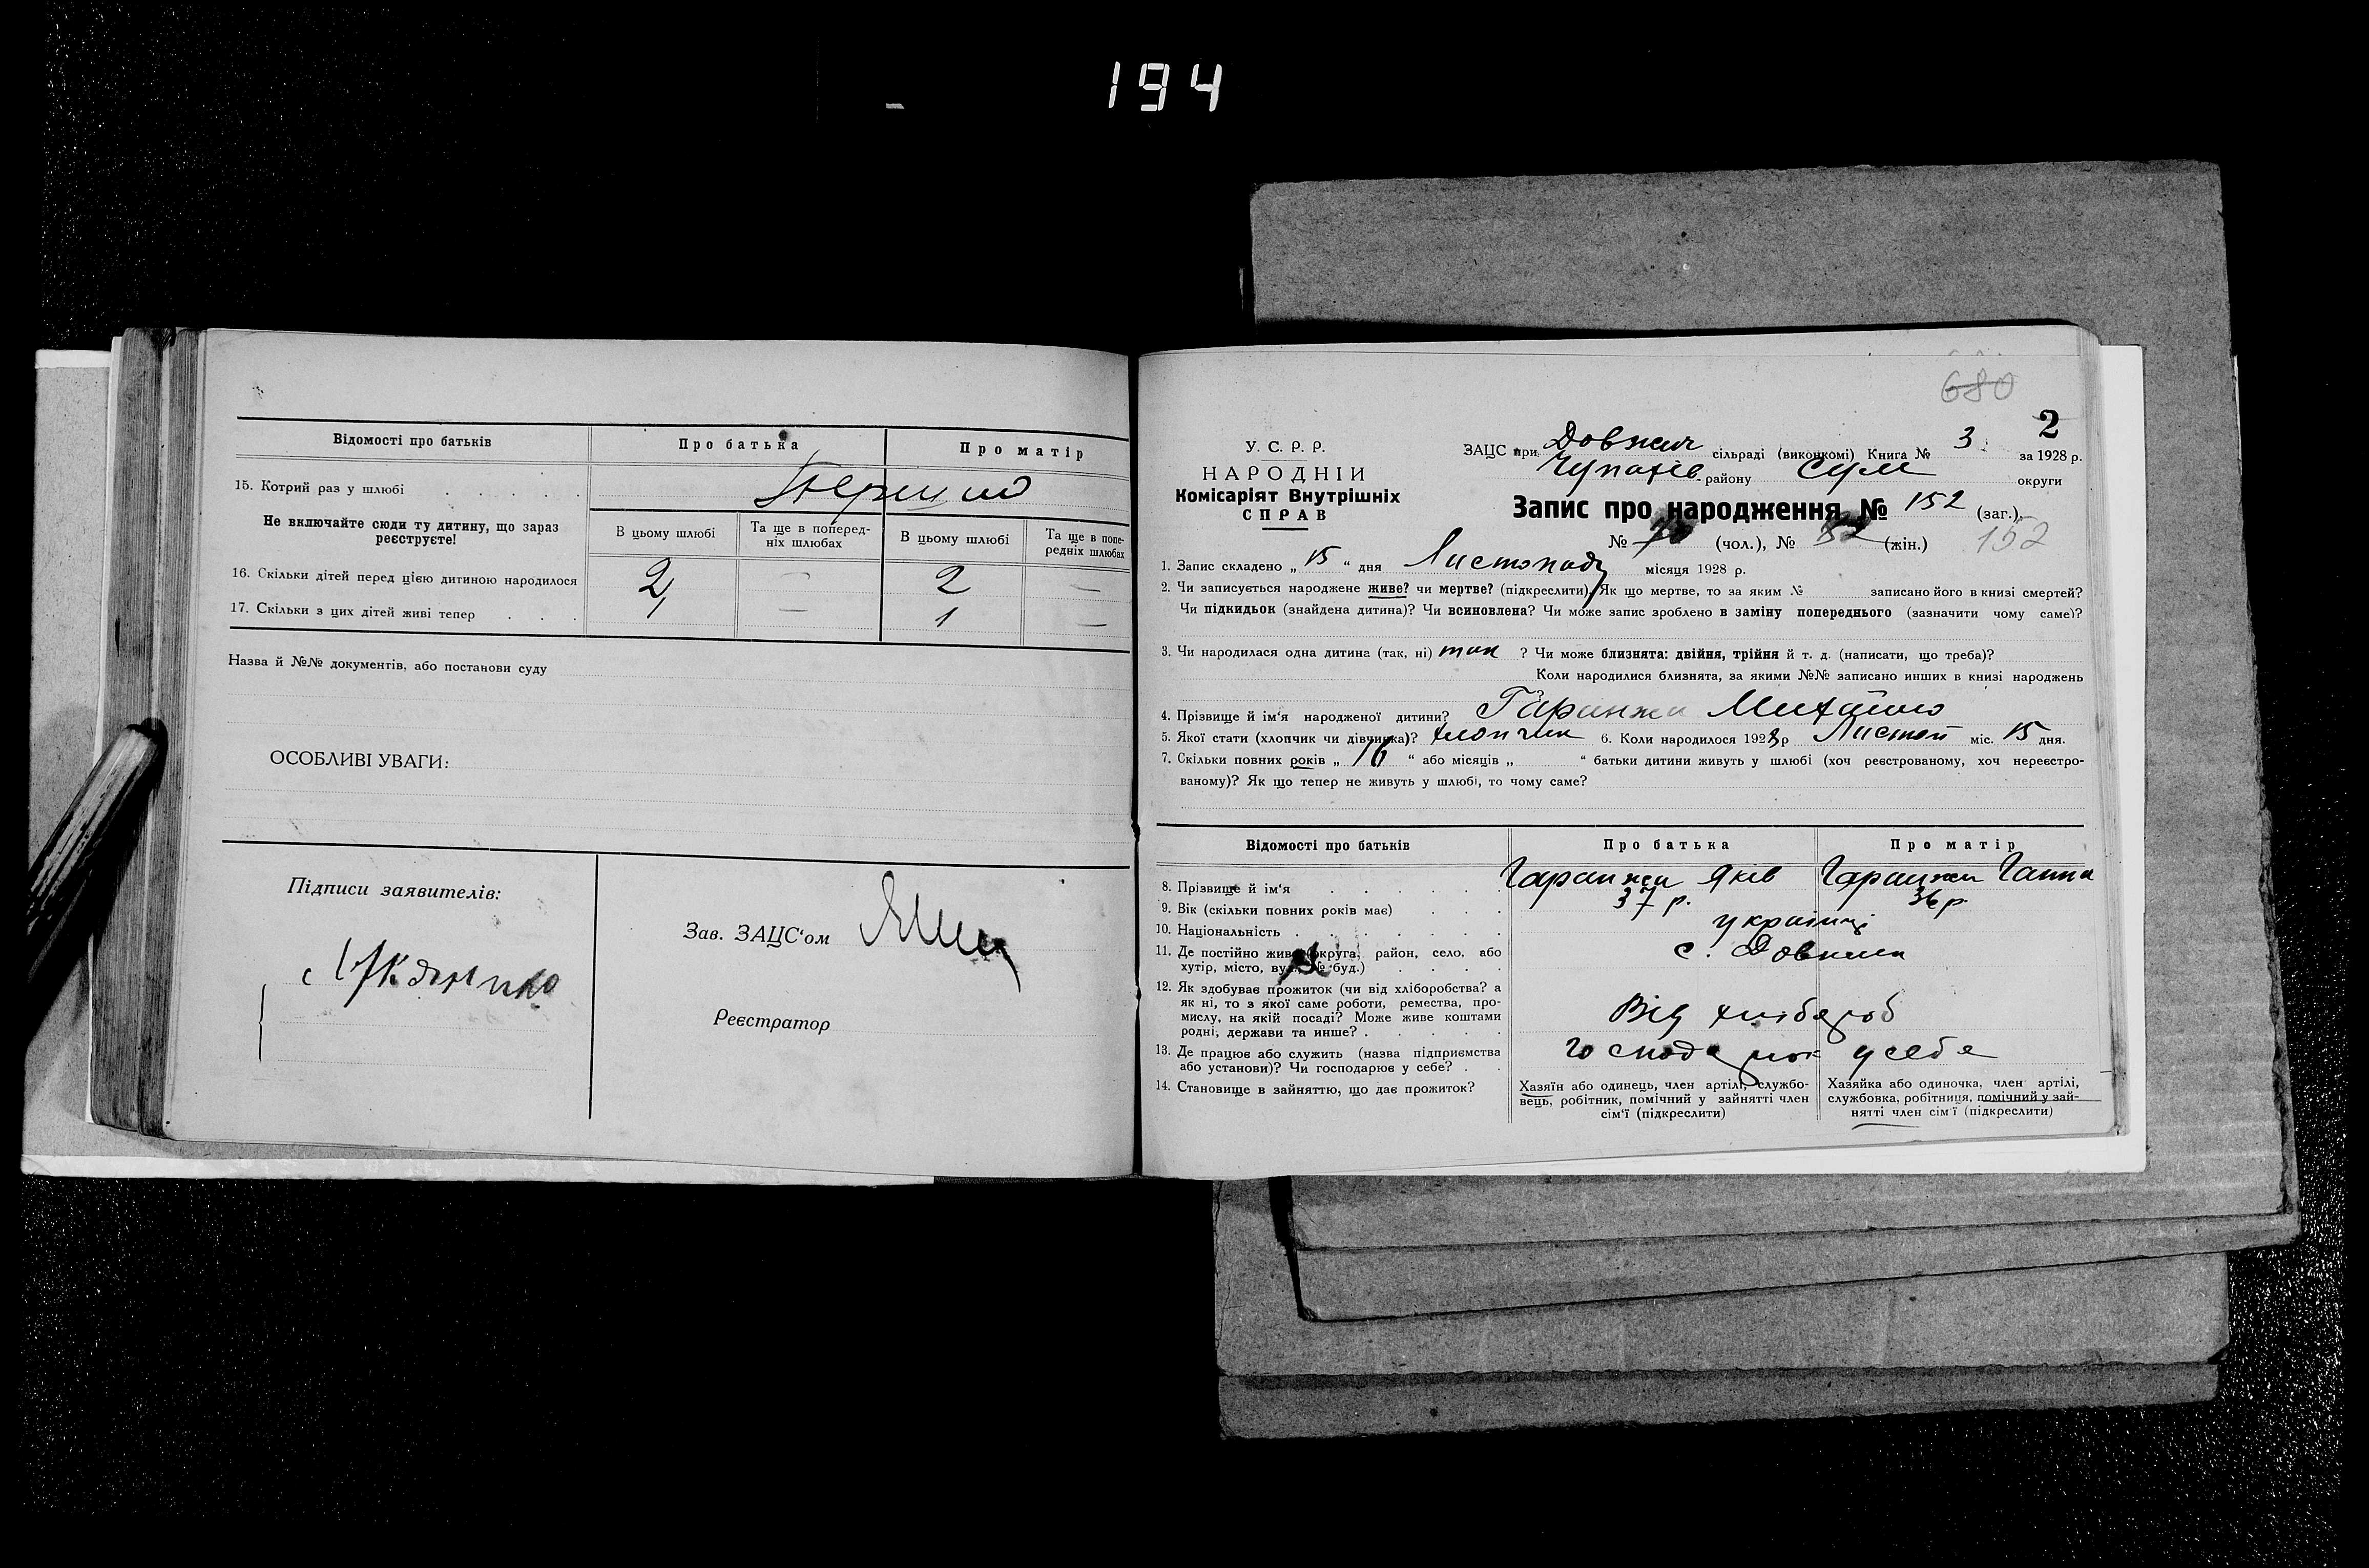 194
Відомості про батьків
Про батька
Про матір
15. Котрий раз у шлюбі
Не включайте сюди ту дитину, що зараз
реєструєте!
В цьому шлюбі
Та ще в поперед-
ніх шлюбах
В цьому шлюбі
Та ще в попе-
редніх шлюбах
16. Скільки дітей перед цією дитиною народилося 2 — 2 —
17. Скільки з цих дітей живі тепер 1 — 1 —
Назва й №№ документів, або постанови суду
ОСОБЛИВІ УВАГИ:
Підписи заявителів:
Зав. ЗАЦС‘ом
Реєстратор
680
2
У. С. Р. Р.
НАРОДНІЙ
Комісаріят Внутрішніх
СПРАВ
ЗАЦС при Довжик сільраді (виконкомі) Книга № 3 за 1928 р.
Чупахів району Сум округи
Запис про народження № 152 (заг.),
№ (чол.), № (жін.) 152
1. Запис складено „ 15 “ дня Листопаду місяця 1928 р.
2. Чи записується народжене живе? чи мертве? (підкреслити). Як що мертве, то за яким № записано його в книзі смертей?
Чи підкидьок (знайдена дитина)? Чи всиновлена? Чи може запис зроблено в заміну попереднього (зазначити чому саме)?
3. Чи народилася одна дитина (так, ні) так ? Чи може близнята: двійня, трійня й т. д. (написати, що треба)?
Коли народилися близнята, за якими №№ записано инших в книзі народжень
4. Прізвище й ім‘я народженої дитини? Гаранжа Михайло
5. Якої стати (хлопчик чи дівчинка)? хлопчик 6. Коли народилося 1928 р Листоп міс. 15 дня.
7. Скільки повних років „ 16 “ або місяців „ “ батьки дитини живуть у шлюбі (хоч реєстрованому, хоч нереєстро-
ваному)? Як що тепер не живуть у шлюбі, то чому саме?
Відомості про батьків
Про батька
Про матір
8. Прізвище й ім‘я Гаранжа Яків Гаранжа Ганна
9. Вік (скільки повних років має) 37 р. 36 р.
10. Національність українці
11. Де постійно живе (округа, район, село, або
хутір, місто, вул., № буд.)
с. Довжик
12. Як здобуває прожиток (чи від хліборобства? а
як ні, то з якої саме роботи, ремества, про-
мислу, на якій посаді? Може живе коштами
родні, держави та инше?
Від хлібороб
13. Де працює або служить (назва підприємства
або установи)? Чи господарює у себе?
господарює у себе
14. Становище в зайняттю, що дає прожиток?
Хазяїн або одинець, член артілі, службо-
вець, робітник, помічний у зайнятті член
сім‘ї (підкреслити)
Хазяйка або одиночка, член артілі,
службовка, робітниця, помічний у зай-
нятті член сім‘ї (підкреслити)